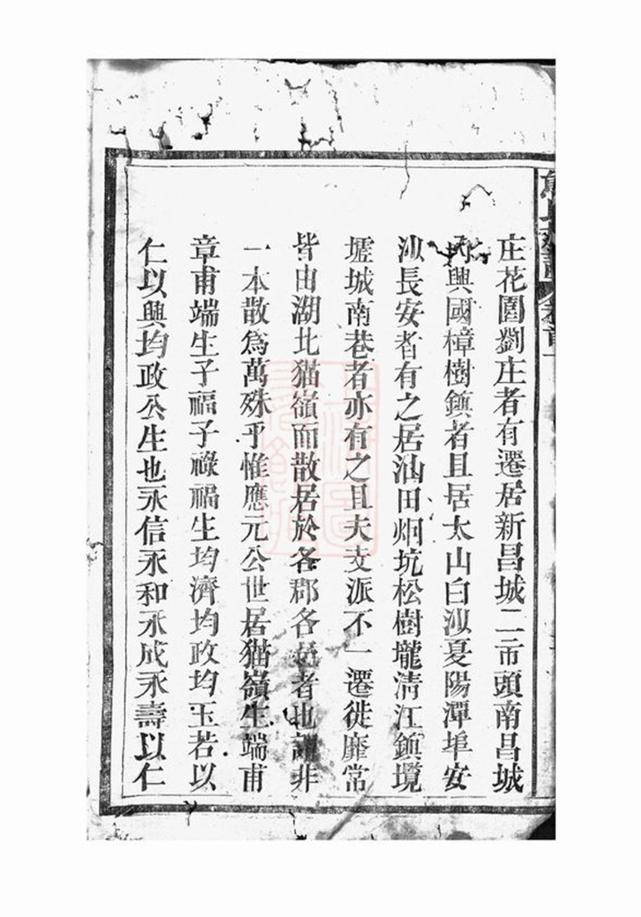 庄花園劉庄者有遷居新昌城二市頭南昌城
興國樟樹鎮者且居太山白汊夏陽潭埠安
汊長安者有之居汕田炯坑松樹壠清江鎮境
壢城南巷者亦有之且夫支派不一遷徙靡常
皆由湖北猫嶺而散居於各郡各邑者也謂非
一本散為萬殊乎惟應元公世居猫嶺生端甫
章甫端生子福子祿福生均濟均政均玉若以
仁以興均政公生也永信永和永成永壽以仁